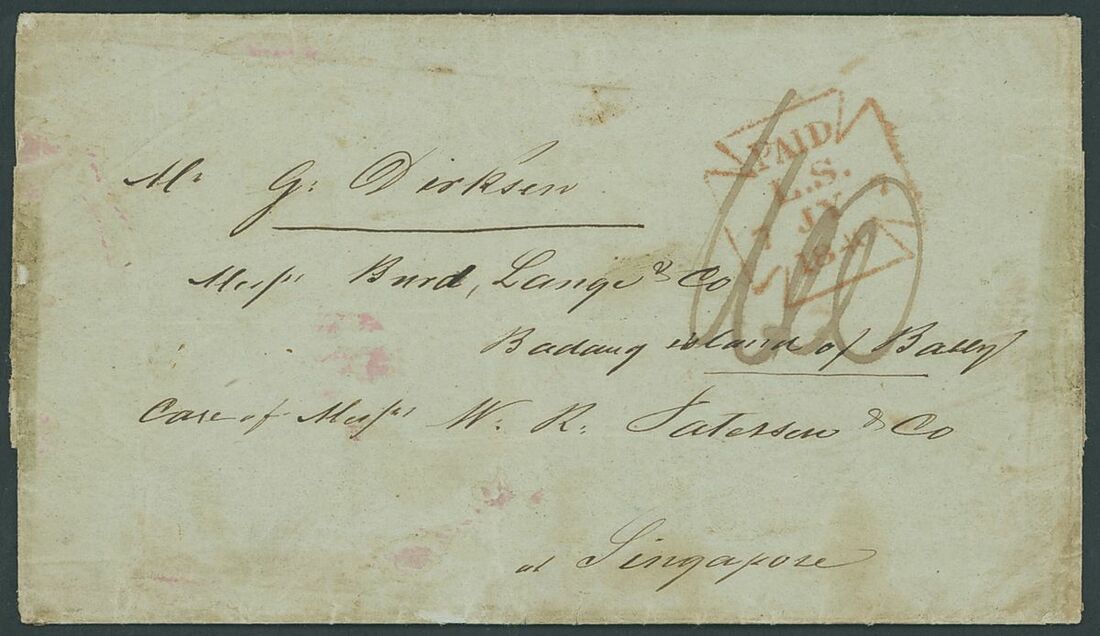 Mr G: Dirksen
Messrs Burd, Lange & Co
Badung island of Bally
Care of Messrs W. R. Paterson & Co
at Singapore
PAID
L.S.
7 JY 7
184